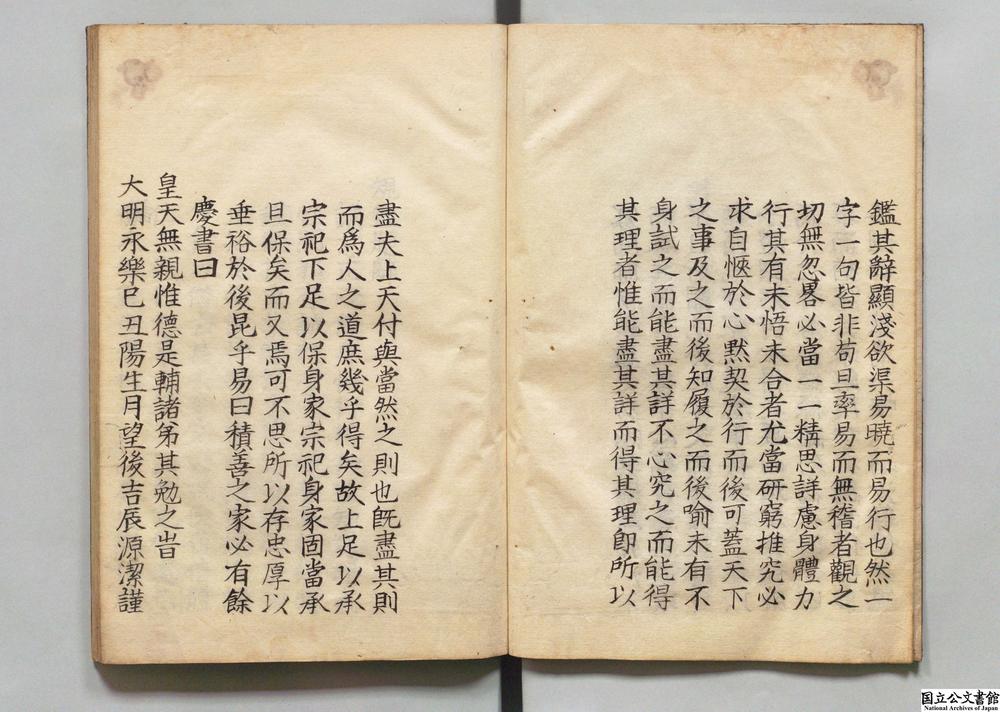 鑑其辭顯淺欲渠易曉而易行也然一
字一句皆非苟且率易而無稽者觀之
切無忽畧必當一一精思詳慮身體力
行其有未悟未合者尤當研窮推究必
求自愜於心默契於行而後可蓋天下
之事及之而後知履之而後喻未有不
身試之而能盡其詳不心究之而能得
其理者惟能盡其詳而得其理卽所以
盡夫上天付與當然之則也旣盡其則
而爲人之道庶幾乎得矣故上足以承
宗祀下足以保身家宗祀身家固當承
且保矣而又焉可不思所以存忠厚以
垂裕於後昆乎易曰積善之家必有餘
慶書曰
皇天無親惟德是輔諸弟其勉之旹
大明永樂己丑陽生月望後吉辰源潔謹
国立公文書館
National Archives of Japan